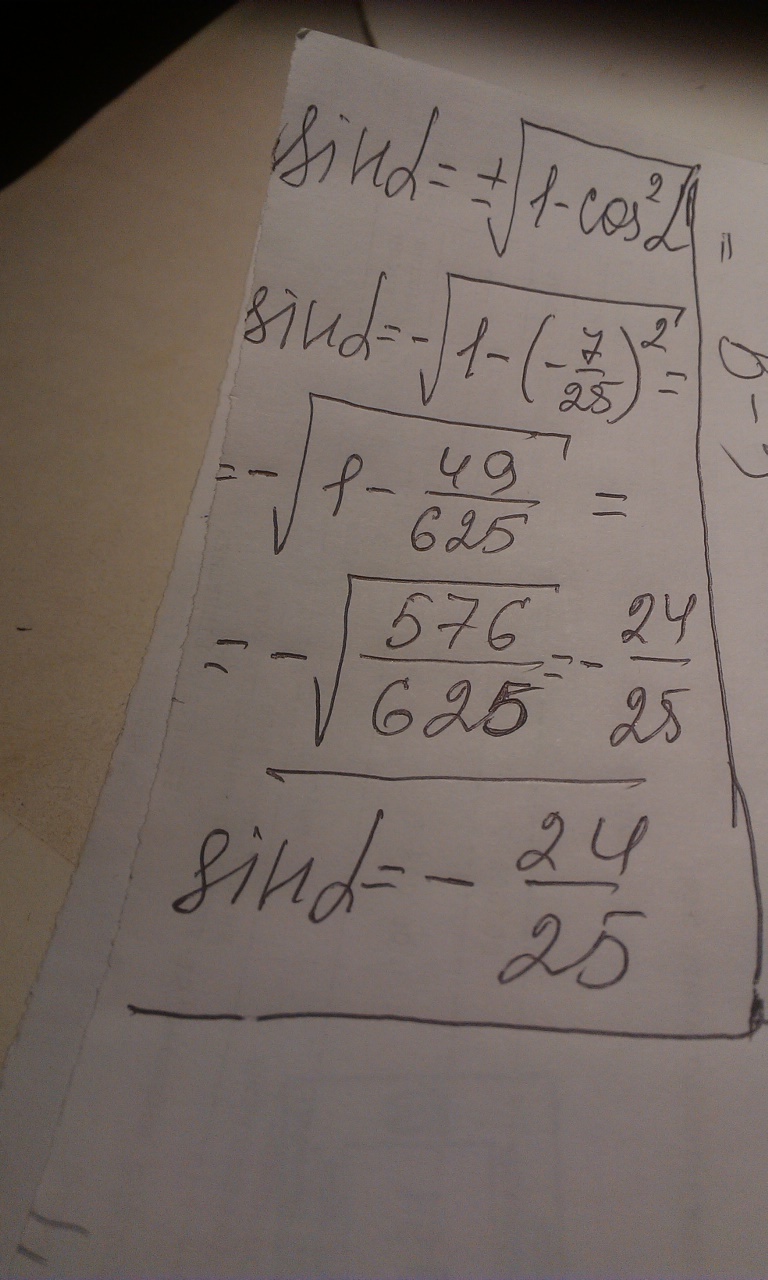 sin α = ±√(1 - cos² α) =
sin α = -√(1 - (-7/25)²) =
= -√(1 - 49/625) =
= -√(576/625) = - 24/25
sin α = - 24/25